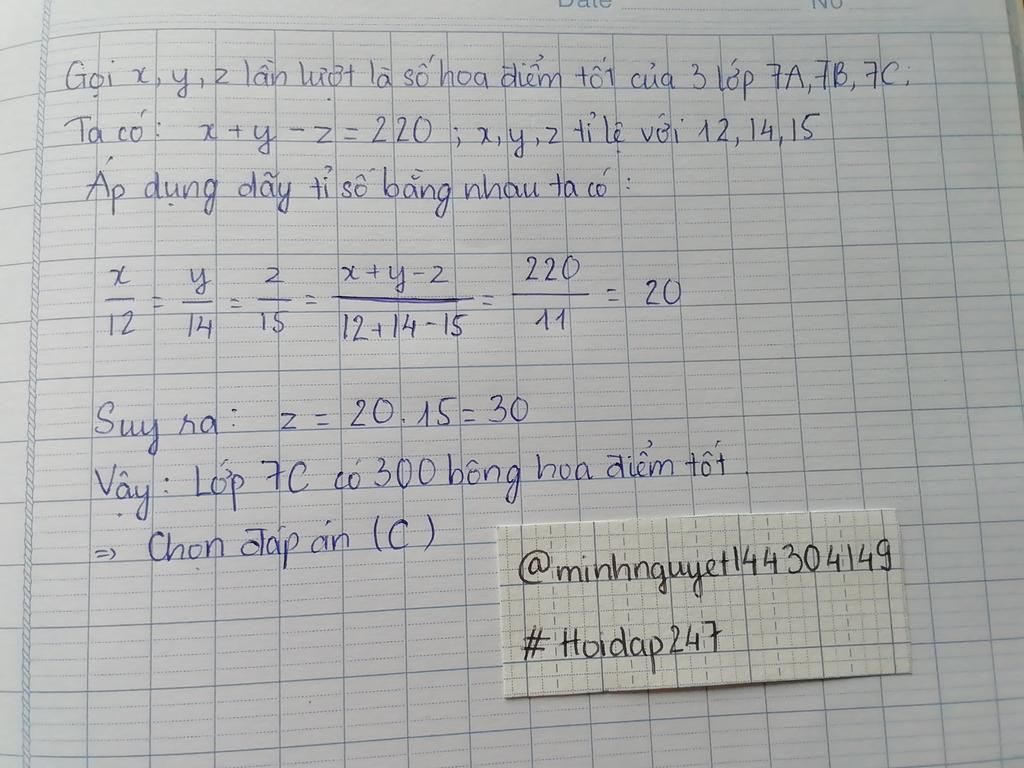 Date No
Gọi x, y, z lần lượt là số hoa điểm tốt của 3 lớp 7A, 7B, 7C.
Ta có: x + y - z = 220 ; x, y, z tỉ lệ với 12, 14, 15
Áp dụng dãy tỉ số bằng nhau ta có:
x/12 = y/14 = z/15 = (x + y - z)/(12 + 14 - 15) = 220/11 = 20
Suy ra: z = 20 . 15 = 30
Vậy: Lớp 7C có 300 bông hoa điểm tốt
=> Chọn đáp án (C)
@minhnguyet144304149
# Hoidap247